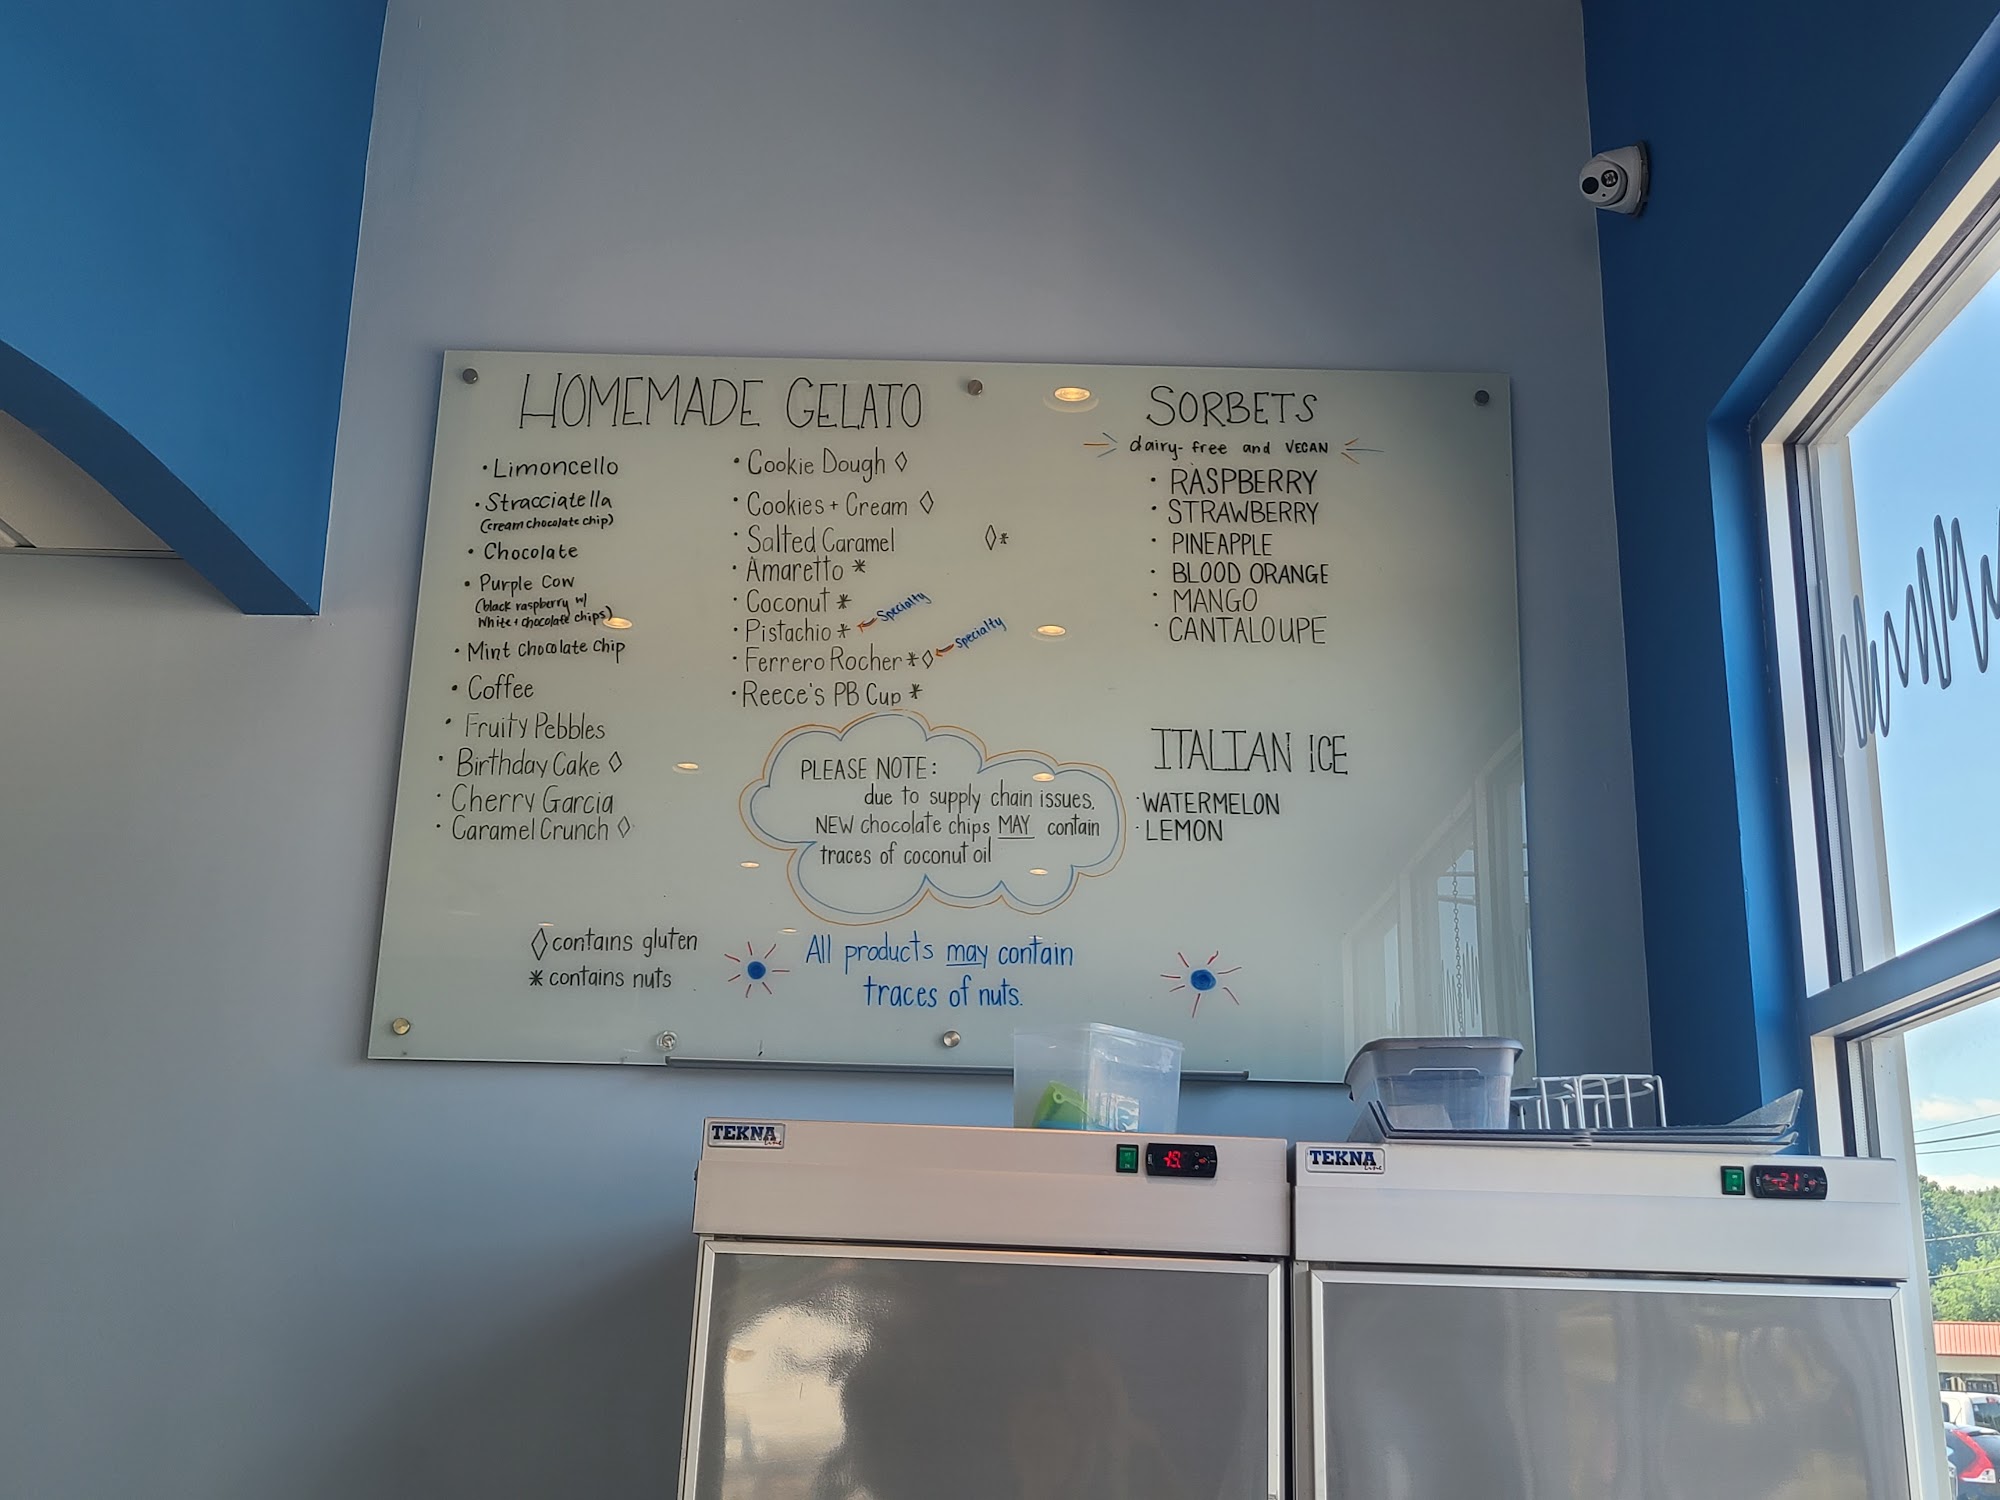 HOMEMADE GELATO
• Limoncello
• Stracciatella
(cream chocolate chip)
• Chocolate
• Purple Cow
(black raspberry w/
white + chocolate chips)
• Mint chocolate chip
• Coffee
• Fruity Pebbles
• Birthday Cake ◊
• Cherry Garcia
• Caramel Crunch ◊
• Cookie Dough ◊
• Cookies + Cream ◊
• Salted Caramel ◊*
• Amaretto *
• Coconut *
• Pistachio * ← Specialty
• Ferrero Rocher *◊ ← Specialty
• Reece's PB Cup *
PLEASE NOTE:
due to supply chain issues,
NEW chocolate chips MAY contain
traces of coconut oil
SORBETS
dairy-free and VEGAN
• RASPBERRY
• STRAWBERRY
• PINEAPPLE
• BLOOD ORANGE
• MANGO
• CANTALOUPE
ITALIAN ICE
• WATERMELON
• LEMON
◊ contains gluten
* contains nuts
All products may contain
traces of nuts.
TEKNA
Line
-19
TEKNA
Line
-21